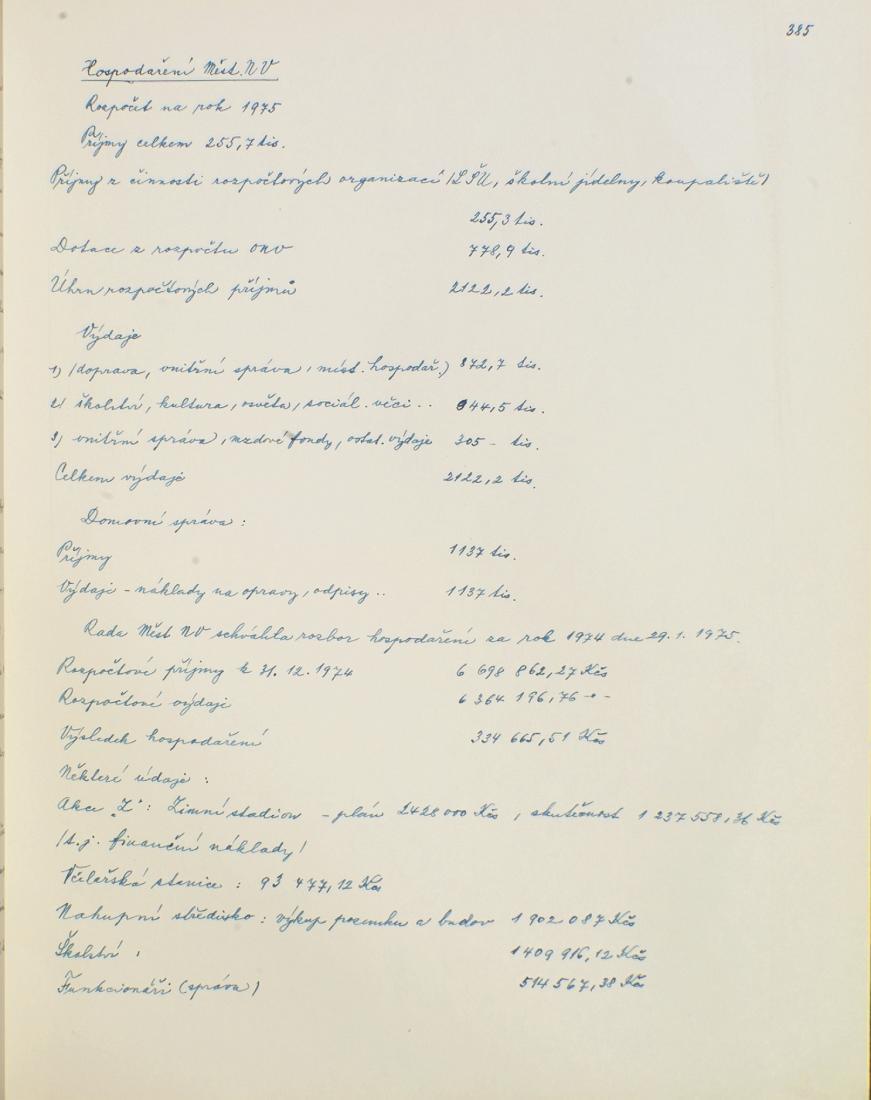 385
Hospodaření Měst. NV
Rozpočet na rok 1975
Příjmy celkem 255,7 tis.
Příjmy z činnosti rozpočtových organizací /LŠU, školní jídelny, koupaliště/
255,3 tis.
Dotace z rozpočtu ONV 778,9 tis.
Úhrn rozpočtových příjmů 2122,2 tis.
Výdaje
1) /doprava, vnitřní správa, míst. hospodář.) 872,7 tis.
2/ školství, kultura, osvěta, sociál. věci .. 944,5 tis.
3) vnitřní správa, mzdové fondy, ostat. výdaje 305 - tis.
Celkem výdaje 2122,2 tis.
Domovní správa :
Příjmy 1137 tis.
Výdaje - náklady na opravy, odpisy .. 1137 tis.
Rada Měst NV schválila rozbor hospodaření za rok 1974 dne 29. 1. 1975.
Rozpočtové příjmy k 31. 12. 1974 6 698 862,27 Kčs
Rozpočtové výdaje 6 364 196,76 -"-
Výsledek hospodaření 334 665,51 Kčs
Některé údaje :
Akce „Z" : Zimní stadion - plán 2428 000 Kčs , skutečnost 1 237 558,36 Kčs
/t.j. finanční náklady/
Včelařská stanice : 93 477,12 Kčs
Nákupní středisko : výkup pozemku a budov 1 902 087 Kčs
Školství : 1409 916,12 Kčs
Funkcionáři (správa) 514 567,38 Kčs